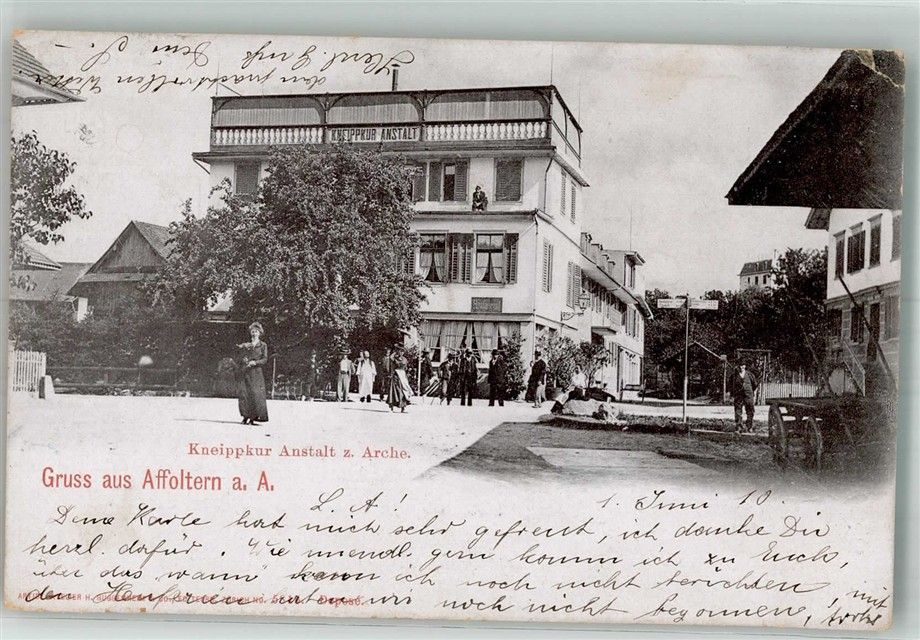 Herzl. Gruss
den prachtvollen
KNEIPPKUR ANSTALT
Kneippkur Anstalt z. Arche.
Gruss aus Affoltern a. A.
L. A! 1. Juni 10.
Deine Karte hat mich sehr gefreut, ich danke Dir
herzl. dafür. Wie unendl. gern komm ich zu Euch,
über das "wann" kann ich noch nicht berichten,
den wir noch nicht begonnen, mit
Deposé.